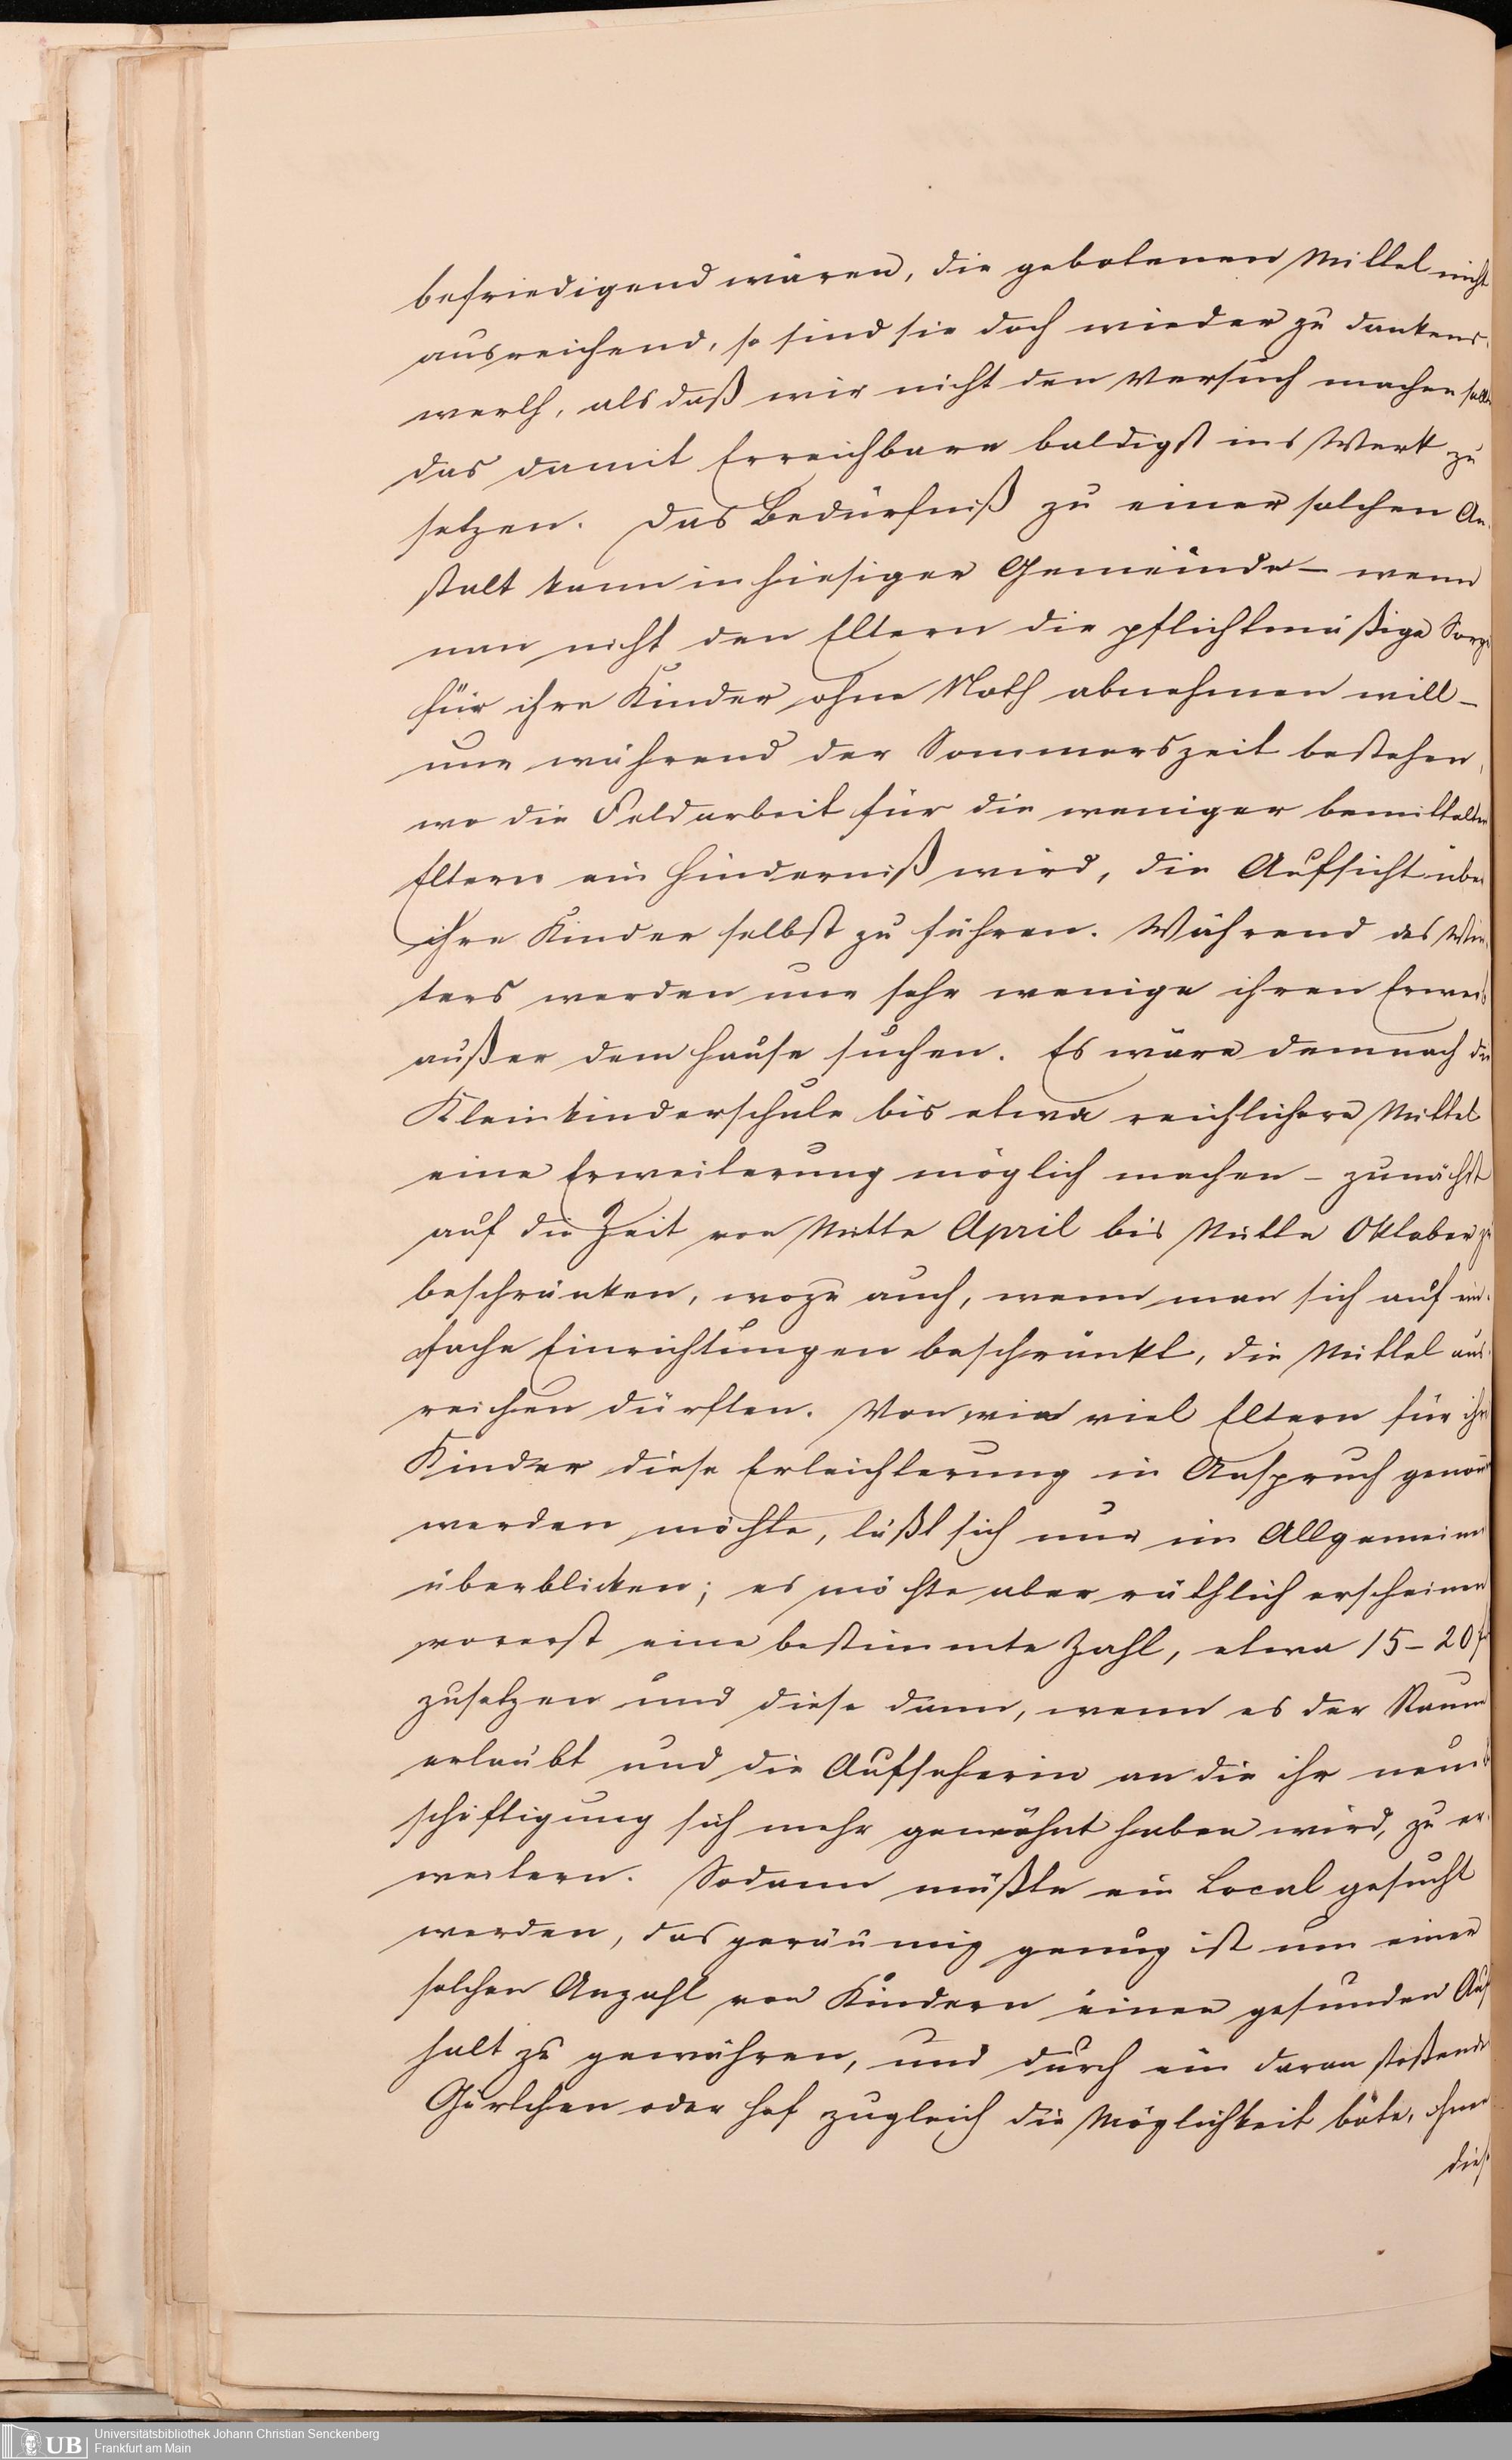 befriedigend wären, die gebotenen Mittel nicht
ausreichend, so sind sie doch wieder zu dankens-
werth, als daß wir nicht den Versuch machen sollten
das damit Erreichbare baldigst ins Werk zu
setzen. Das Bedürfniß zu einer solchen An-
stalt kann in hiesiger Gemeinde – wenn
man nicht den Eltern die pflichtmäßige Sorge
für ihre Kinder ohne Noth abnehmen will –
nur während der Sommerszeit bestehen,
wo die Feldarbeit für die weniger bemittelten
Eltern ein Hinderniß wird, die Aufsicht über
ihre Kinder selbst zu führen. Während des Win-
ters werden nur sehr wenige ihren Erwerb
außer dem Hause suchen. Es wäre demnach die
Kleinkinderschule bis etwa reichlichere Mittel
eine Erweiterung möglich machen – zunächst
auf die Zeit von Mitte April bis Mitte Oktober zu
beschränken, wozu auch, wenn man sich auf ein-
fache Einrichtungen beschränkt, die Mittel aus-
reichen dürften. Von wie viel Eltern für ihre
Kinder diese Erleichterung in Anspruch genom̅en
werden möchte, läßt sich nur im Allgemeinen
überblicken; es möchte aber räthlich erscheinen
vorerst eine bestimmte Zahl, etwa 15–20 fest
zusetzen und diese dann, wenn es der Raum
erlaubt und die Aufseherin an die ihr neue Be
schäftigung sich mehr gewöhnt haben wird, zu er-
weitern. Sodann müßte ein Local gesucht
werden, das geräumig genug ist um einer
solchen Anzahl von Kindern einen gesunden Auf
halt zu gewähren, und durch ein daran stoßendes
Gärtchen oder Hof zugleich die Möglichkeit böte, ohne
dies